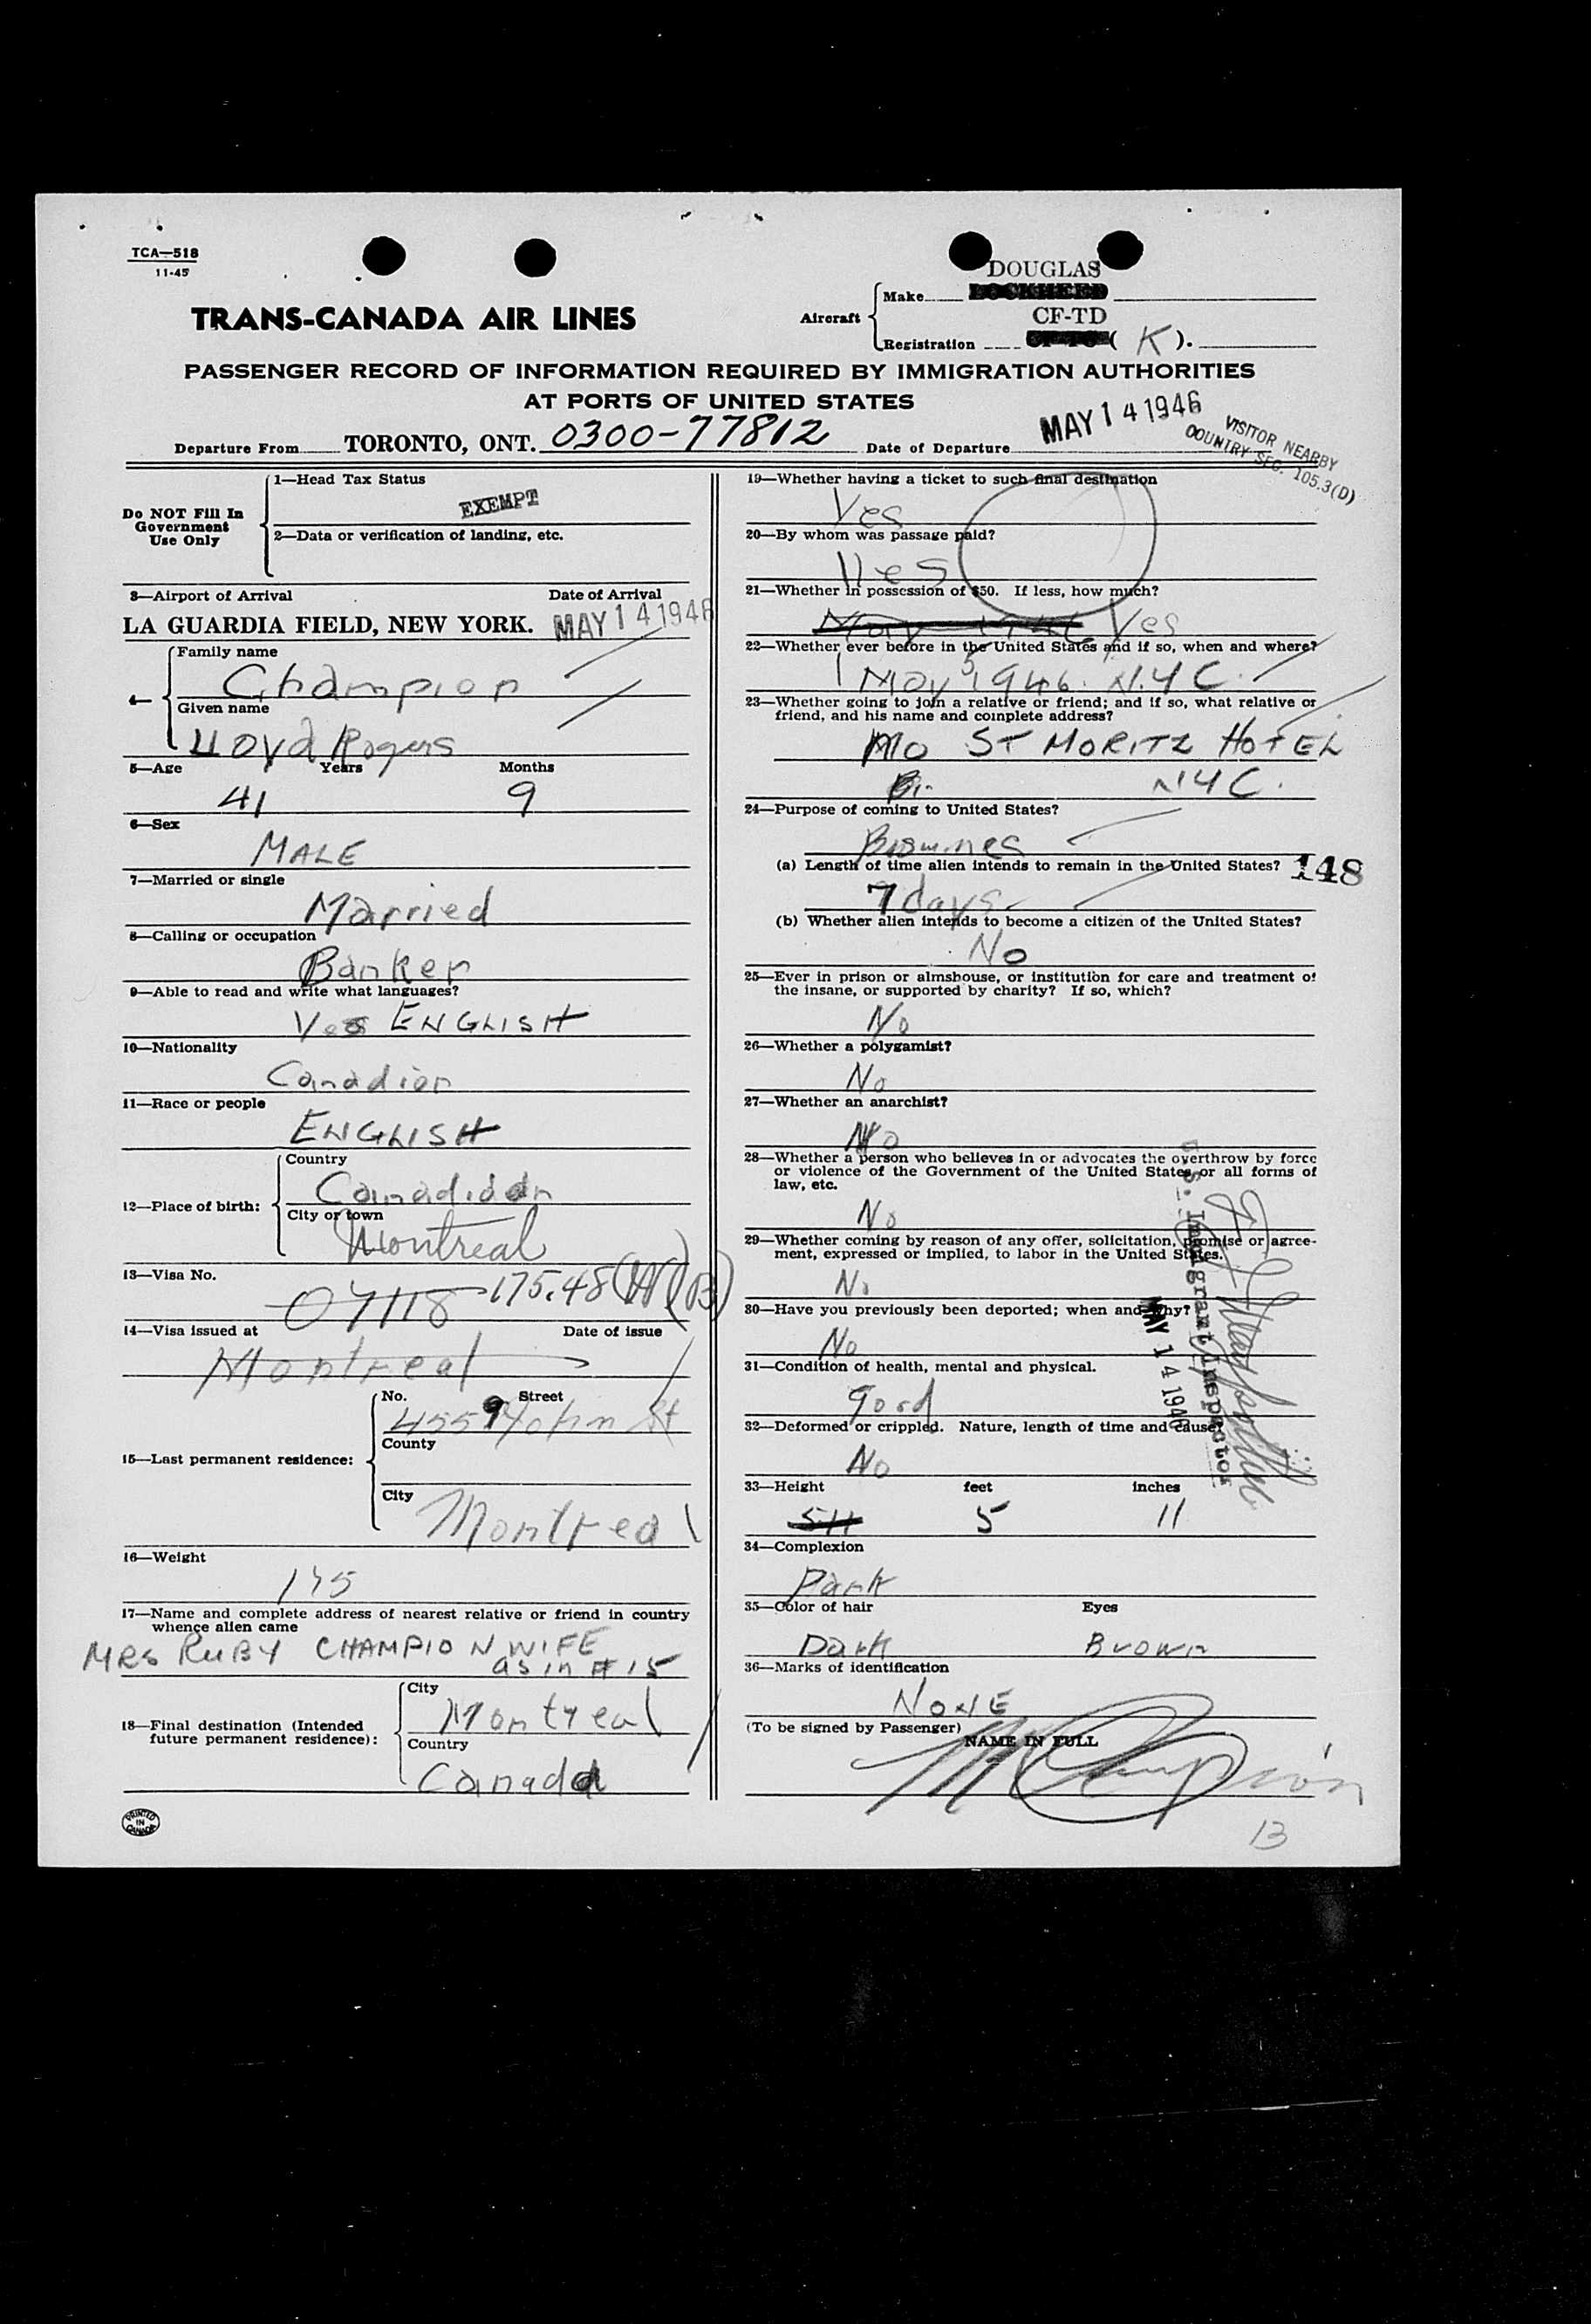 TCA—518
11-45
DOUGLAS
Make LOCKHEED
TRANS-CANADA AIR LINES
Aircraft
CF-TD
Registration ( K ).
PASSENGER RECORD OF INFORMATION REQUIRED BY IMMIGRATION AUTHORITIES
AT PORTS OF UNITED STATES
Departure From TORONTO, ONT. 0300-77812 Date of Departure MAY 14 1946
VISITOR NEARBY
COUNTRY SEC. 105.3(D)
Do NOT Fill In
Government
Use Only
1—Head Tax Status
EXEMPT
2—Data or verification of landing, etc.
3—Airport of Arrival Date of Arrival
LA GUARDIA FIELD, NEW YORK. MAY 14 1946
4—
Family name
Champion
Given name
Lloyd Rogers
5—Age Years Months
41 9
6—Sex
MALE
7—Married or single
Married
8—Calling or occupation
Banker
9—Able to read and write what languages?
Yes ENGLISH
10—Nationality
Canadian
11—Race or people
ENGLISH
12—Place of birth:
Country
Canadian
City or town
Montreal
13—Visa No.
175.48
14—Visa issued at Date of issue
Montreal
15—Last permanent residence:
No. Street
4559 St
County
City
Montreal
16—Weight
17—Name and complete address of nearest relative or friend in country
whence alien came
MRS RUBY CHAMPION WIFE
as in # 15
18—Final destination (Intended
future permanent residence):
City
Montreal
Country
Canada
PRINTED
IN
CANADA
19—Whether having a ticket to such final destination
Yes
20—By whom was passage paid?
Yes
21—Whether in possession of $50. If less, how much?
Yes
22—Whether ever before in the United States and if so, when and where?
May 1946. N.Y C.
23—Whether going to join a relative or friend; and if so, what relative or
friend, and his name and complete address?
No ST MORITZ HOTEL
NYC.
24—Purpose of coming to United States?
Businnes
(a) Length of time alien intends to remain in the United States? 148
7 days
(b) Whether alien intends to become a citizen of the United States?
No
25—Ever in prison or almshouse, or institution for care and treatment of
the insane, or supported by charity? If so, which?
No
26—Whether a polygamist?
No
27—Whether an anarchist?
No
28—Whether a person who believes in or advocates the overthrow by force
or violence of the Government of the United States or all forms of
law, etc.
No
29—Whether coming by reason of any offer, solicitation, promise or agree-
ment, expressed or implied, to labor in the United States.
No
30—Have you previously been deported; when and why?
No
31—Condition of health, mental and physical.
good
32—Deformed or crippled. Nature, length of time and cause
No
U.S. Immigrant Inspector
MAY 14 1946
33—Height feet inches
5 11 5 11
34—Complexion
Dark
35—Color of hair Eyes
Dark Brown
36—Marks of identification
NONE
(To be signed by Passenger)
NAME IN FULL
Champion
13